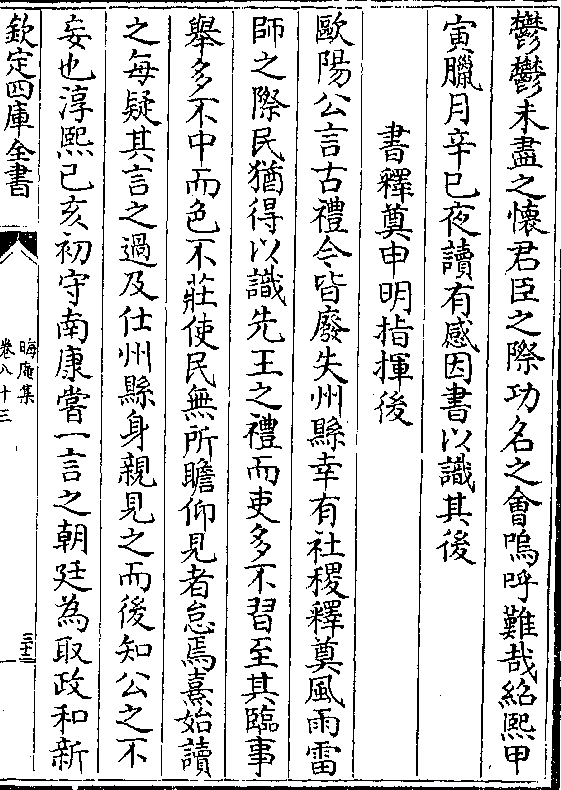 鬱鬱未盡之懷君臣之際功名之會嗚呼難哉紹熙甲
寅臘月辛巳夜讀有感因書以識其後
書釋奠申明指揮後
歐陽公言古禮今皆廢失州縣幸有社稷釋奠風雨雷
師之際民猶得以識先王之禮而吏多不習至其臨事
舉多不中而色不莊使民無所瞻仰見者怠焉熹始讀
之每疑其言之過及仕州縣身親見之而後知公之不
妄也淳熙己亥初守南康嘗一言之朝廷為取政和新
欽定四庫全書
晦庵集
卷八十三
三十三